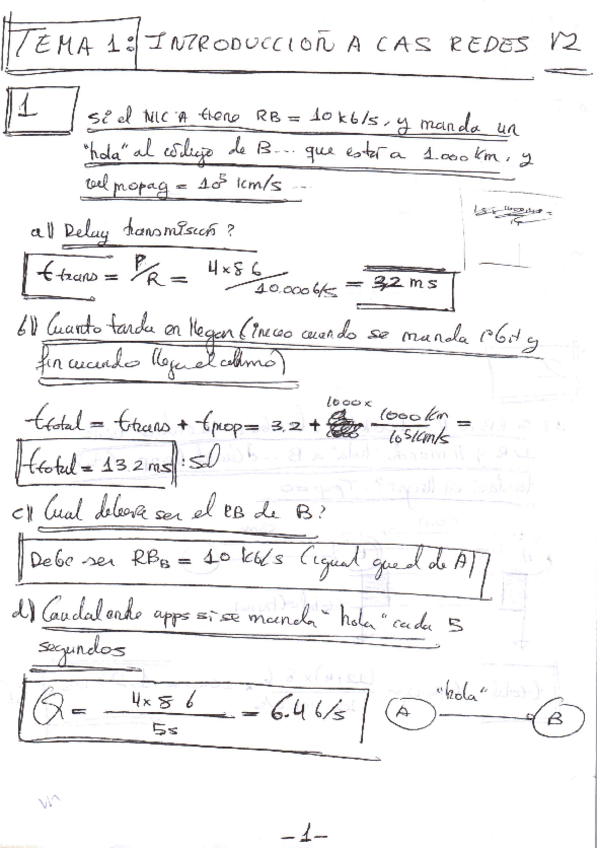 TEMA 1: INTRODUCCIOÑ A LAS REDES V2
1
Si el NIC A tiene RB = 10 kb/s, y manda un
"hola" al código de B... que está a 1.000 km, y
vel propag = 10⁵ km/s ...
a) Delay transmisión?
t trans = P/R = 4x8 b / 10.000 b/s = 3,2 ms
b) Cuanto tarda en llegar (inicio cuando se manda 1º bit y
fin cuando llega el último)
t total = t trans + t prop = 3.2 + 1000 x 1000 km / 10⁵ km/s =
t total = 13.2 ms : sol
c) Cual debera ser el RB de B?
Debe ser RB_B = 10 kb/s (igual que el de A)
d) Caudal entre apps si se manda "hola" cada 5
segundos
Q = 4x8 b / 5s = 6.4 b/s
"hola"
A B
-1-